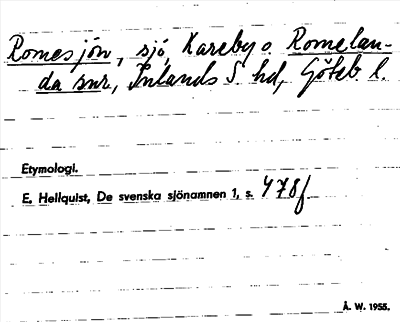 Romesjön, sjö, Kareby o. Romelan-
da snr, Inlands S. hd, Göteb. l.
Etymologi.
E. Hellquist, De svenska sjönamnen 1, s. 478f
Å. W. 1955.